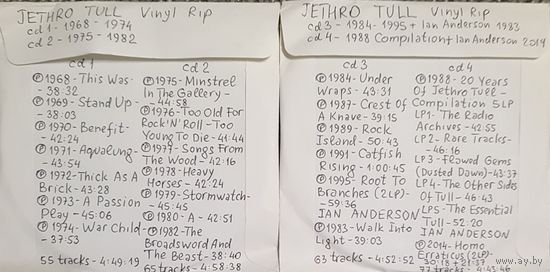 JETHRO TULL Vinyl Rip
cd 1 - 1968 - 1974
cd 2 - 1975 - 1982
cd 1
℗1968-This Was-
- 38:32
℗1969-Stand Up-
- 38:03
℗1970-Benefit-
- 42:24
℗1971-Aqualung-
- 43:54
℗1972-Thick As A
Brick - 43:28
℗1973-A Passion
Play - 45:06
℗1974-War Child-
- 37:53
55 tracks - 4:49:19
cd 2
℗1975-Minstrel
In The Gallery -
- 44:58
℗1976-Too Old For
Rock'N'Roll-Too
Young To Die - 41:44
℗1977-Songs From
The Wood - 42:16
℗1978-Heavy
Horses - 42:24
℗1979-Stormwatch-
- 45:45
℗1980-A - 42:51
℗1982-The
Broadsword And
The Beast - 38:40
65 tracks - 4:58:38
JETHRO TULL Vinyl Rip
cd 3 - 1984 - 1995 + Ian Anderson 1983
cd 4 - 1988 Compilation + Ian Anderson 2014
cd 3
℗1984-Under
Wraps - 43:31
℗1987-Crest Of
A Knave - 39:15
℗1989-Rock
Island - 50:43
℗1991-Catfish
Rising - 1:00:45
℗1995-Root To
Branches (2LP)-
- 59:36
IAN ANDERSON
℗1983-Walk Into
Light - 39:03
63 tracks - 4:52:52
cd 4
℗1988-20 Years
Of Jethro Tull -
Compilation 5LP
LP1-The Radio
Archives - 42:55
LP2-Rare Tracks-
- 46:16
LP3-Flawed Gems
(Dusted Down)-43:37
LP4-The Other Sides
Of Tull - 46:43
LP5-The Essential
Tull - 52:20
IAN ANDERSON
℗2014-Homo
Erraticus (2LP)-
30:18 + 21:37
77 tracks - 4:43:46
ay.by